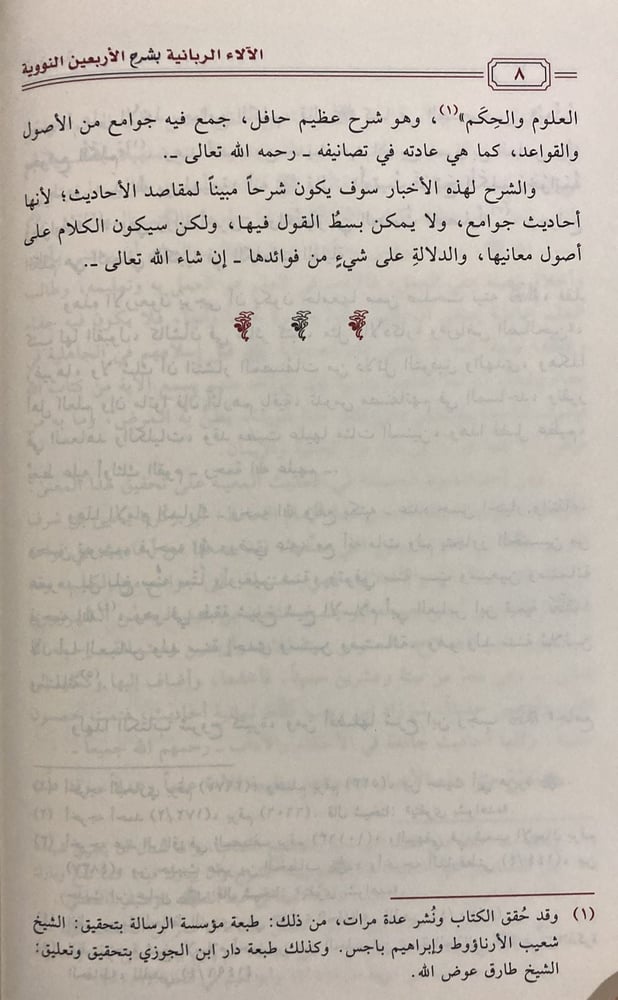 الآلاء الربانية بشرح الأربعين النووية
٨
العلوم والحِكَم»(١)، وهو شرح عظيم حافل، جمع فيه جوامع من الأصول
والقواعد، كما هي عادته في تصانيفه ـ رحمه الله تعالى ـ.
والشرح لهذه الأخبار سوف يكون شرحاً مبيناً لمقاصد الأحاديث؛ لأنها
أحاديث جوامع، ولا يمكن بسطُ القول فيها، ولكن سيكون الكلام على
أصول معانيها، والدلالةِ على شيءٍ من فوائدها ـ إن شاء الله تعالى ـ.
(١) وقد حُقق الكتاب ونُشر عدة مرات، من ذلك: طبعة مؤسسة الرسالة بتحقيق: الشيخ
شعيب الأرناؤوط وإبراهيم باجس. وكذلك طبعة دار ابن الجوزي بتحقيق وتعليق:
الشيخ طارق عوض الله.